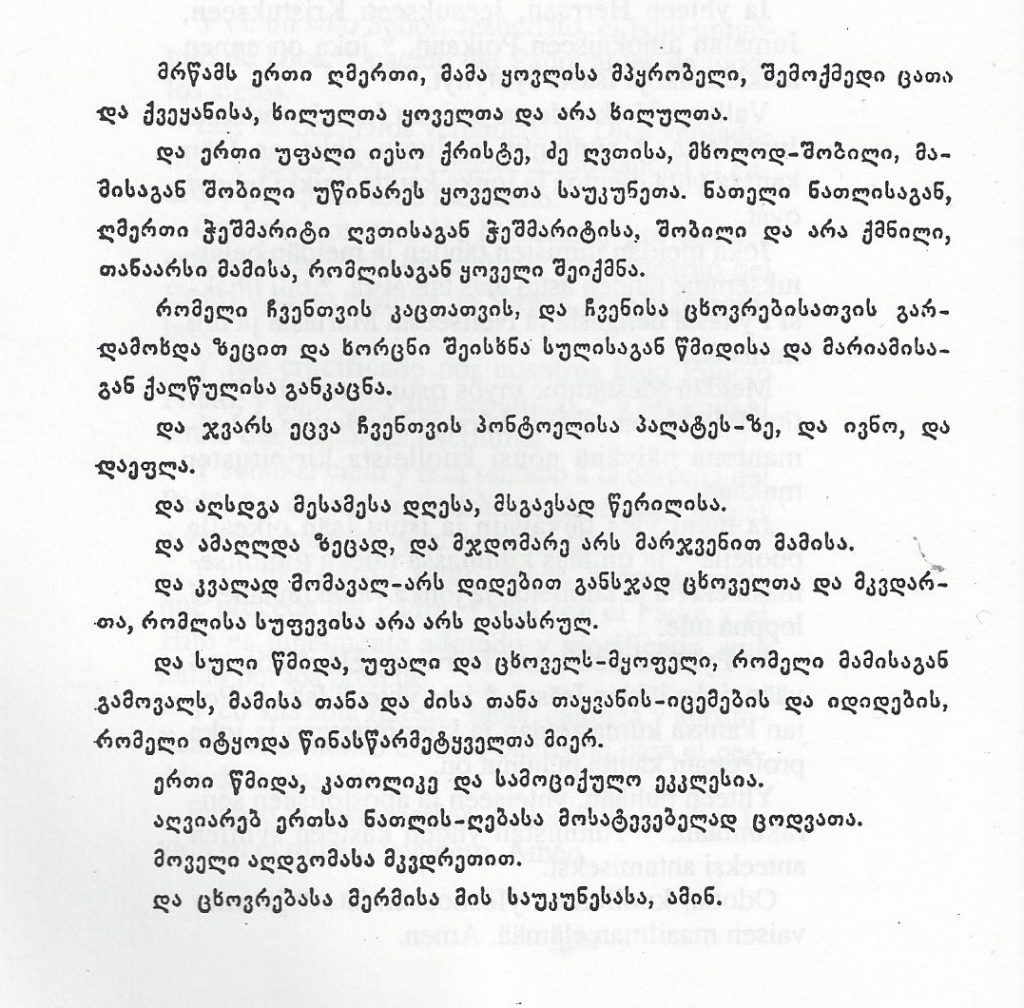 მრწამს ერთი ღმერთი, მამა ყოვლისა მპყრობელი, შემოქმედი ცათა
და ქვეყანისა, ხილულთა ყოველთა და არა ხილულთა.
და ერთი უფალი იესო ქრისტე, ძე ღვთისა, მხოლოდ-შობილი, მა-
მისაგან შობილი უწინარეს ყოველთა საუკუნეთა. ნათელი ნათლისაგან,
ღმერთი ჭეშმარიტი ღვთისაგან ჭეშმარიტისა, შობილი და არა ქმნილი,
თანაარსი მამისა, რომლისაგან ყოველი შეიქმნა.
რომელი ჩვენთვის კაცთათვის, და ჩვენისა ცხოვრებისათვის გარ-
დამოხდა ზეცით და ხორცნი შეისხნა სულისაგან წმიდისა და მარიამისა-
გან ქალწულისა განკაცნა.
და ჯვარს ეცვა ჩვენთვის პონტოელისა პალატეს-ზე, და ივნო, და
დაეფლა.
და აღსდგა მესამესა დღესა, მსგავსად წერილისა.
და ამაღლდა ზეცად, და მჯდომარე არს მარჯვენით მამისა.
და კვალად მომავალ-არს დიდებით განსჯად ცხოველთა და მკვდარ-
თა, რომლისა სუფევისა არა არს დასასრულ.
და სული წმიდა, უფალი და ცხოველს-მყოფელი, რომელი მამისაგან
გამოვალს, მამისა თანა და ძისა თანა თაყვანის-იცემების და იდიდების,
რომელი იტყოდა წინასწარმეტყველთა მიერ.
ერთი წმიდა, კათოლიკე და სამოციქულო ეკკლესია.
აღვიარებ ერთსა ნათლის-ღებასა მოსატევებელად ცოდვათა.
მოველი აღდგომასა მკვდრეთით.
და ცხოვრებასა მერმისა მის საუკუნესასა, ამინ.